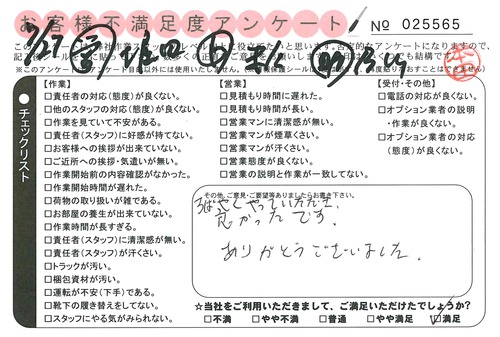 お客様不満足度アンケート
No 025565
チェックリスト
【作業】
□責任者の対応(態度)が良くない。
□他のスタッフの対応(態度)が良くない。
□作業を見ていて不安がある。
□責任者(スタッフ)に好感が持てない。
□お客様への挨拶が出来ていない。
□ご近所への挨拶・気遣いが無い。
□作業開始前の内容確認がなかった。
□作業開始時間が遅れた。
□荷物の取り扱いが雑である。
□お部屋の養生が出来ていない。
□作業時間が長すぎる。
□責任者(スタッフ)に清潔感が無い。
□責任者(スタッフ)が汗くさい。
□トラックが汚い。
□梱包資材が汚い。
□運転が不安(下手)である。
□靴下の履き替えをしてない。
□スタッフにやる気がみられない。
【営業】
□見積もり時間に遅れた。
□見積もり時間が長い。
□営業マンに清潔感が無い。
□営業マンが煙草くさい。
□営業マンが汗くさい。
□営業態度が良くない。
□営業の説明と作業が一致してない。
【受付・その他】
□電話の対応が良くない。
□オプション業者の説明
・作業が良くない。
□オプション業者の対応
(態度)が良くない。
その他、ご意見・ご要望等ありましたらお書き下さい。
やっていただき
良かったです。
ありがとうございました。
☆当社をご利用いただきまして、ご満足いただけたでしょうか?
□不満 □やや不満 □普通 □やや満足 ☑満足